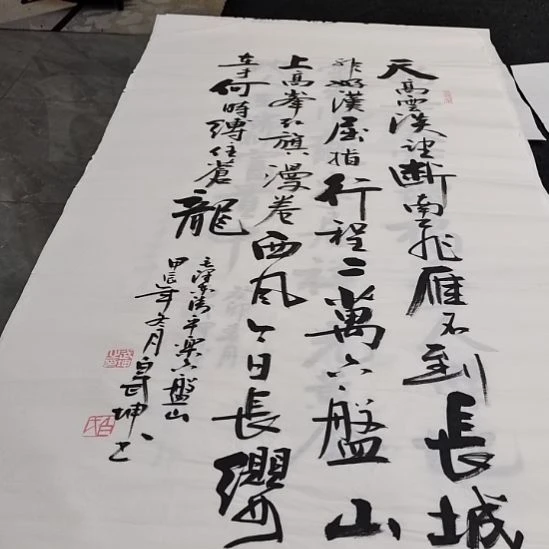 天高雲淡望断南飞雁不到長城
非好漢屈指行程二萬六盤山
上高峯红旗漫卷西風今日長纓
在手何時縛住蒼龍
毛澤东清平樂六盤山
甲辰年冬月白武坤书